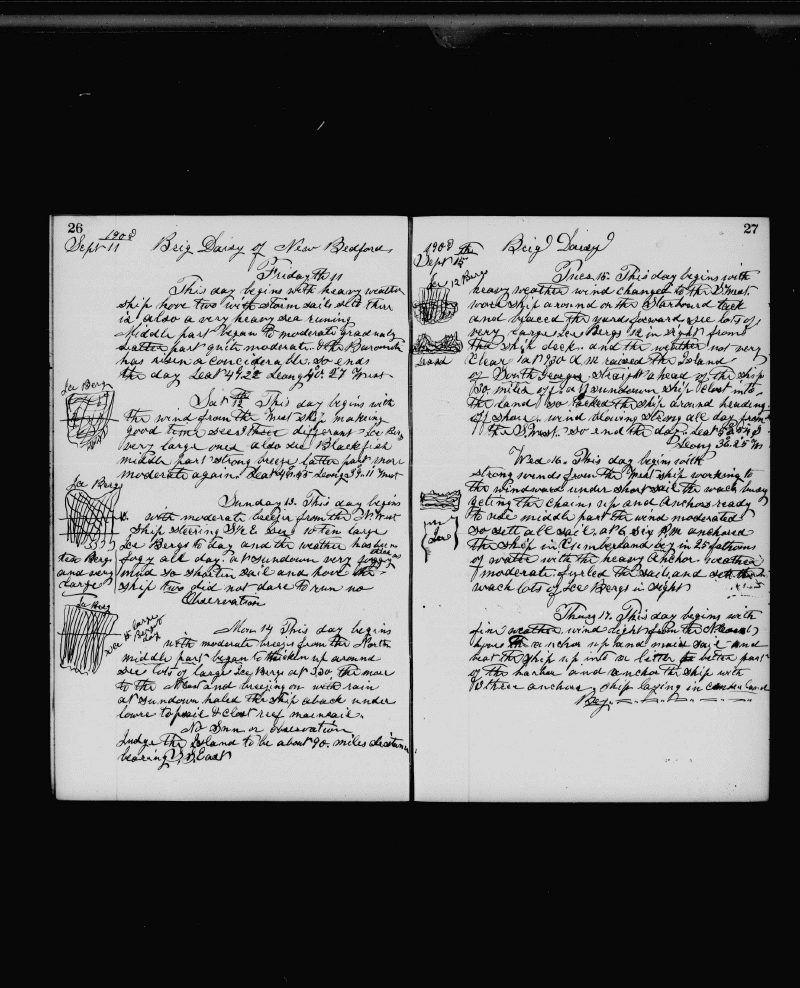 26
1908
Sept 11 Brig Daisy of New Bedford
Friday th 11
This day begins with heavy weather
ship hove two with storm sails set thir
is also a very heavy sea runing
Middle part began to moderate gradualy
Latter part quite moderate. & the Baromith
has risen a conciderable. So ends
the day Leat 49.22 Leong 40.27 West
Ice Berg
Sat 12th This day begins with
the wind from the West ship making
good time see 3 three differant Ice Berg
very large ones also see Blackfish
middle part strong breeze latter part more
moderate again. Leat 49.45 Leong 39.11 West
Ice Bergs
Sunday 13. This day begins
with moderate breezes from the N West
Ship steering S W E see 10 ten large
Ice Bergs to day and the weather has bin
fogy all day. at sundown very fogy
and so shorten sail and hove the
ship two did not dare to run no
Observation
ten Bergs
and very
large
Ice Berg
see 15 large
Ice Bergs
Mon 14 This day begins
with moderate breezes from the North
middle part began to thicken up around
see lots of large Ice Bergs at 3.30. the
to the N East and breezing on with rain
at sundown haled the ship aback under
lower topsail & Clost reef mainsail.
No Sun or observation
Judge the Island to be about 90. miles distance
bearing S, S, East
27
1908 th
Sept 15 Brig Daisy
Ice 12 Berg
Land
Tues. 15. This day begins with
heavy weather wind changed to the S West.
wore ship around on the Starboard tack
and braced the yards forward see lots of
very large Ice Bergs 12 in sight from
the ship deck. and the weather not very
Clear. at 9.30 A.M. raised the Island
of South Georgia straight ahead of the ship
30. miles off at sundown ship Clost into
the land so tacked the ship around heading
off shore. wind blowing strong all day from
the S West. so end the day. Leat 53.50
Leong 38.25 W
Wed 16. This day begins with
strong winds from the West ship working to
the windward under short sail the wach busy
geting the Chains up and Anchors ready
to use middle part the wind moderated
so sett all sail. at 6 six P.M. anchored
the ship in Cumberland bay in 25 fathoms
of water with the heavy Anchor weather
moderate. furled the sails, and sett the
wach lots of Ice Bergs in sight
Ice
Thurs 17. This day begins with
fine weather, wind light from the N East
hove the anchor up and made sail and
beat the ship up into a letter to better part
of the harbor and anchor the ship with
3 three anchors. ship laying in Cumberland
Bay